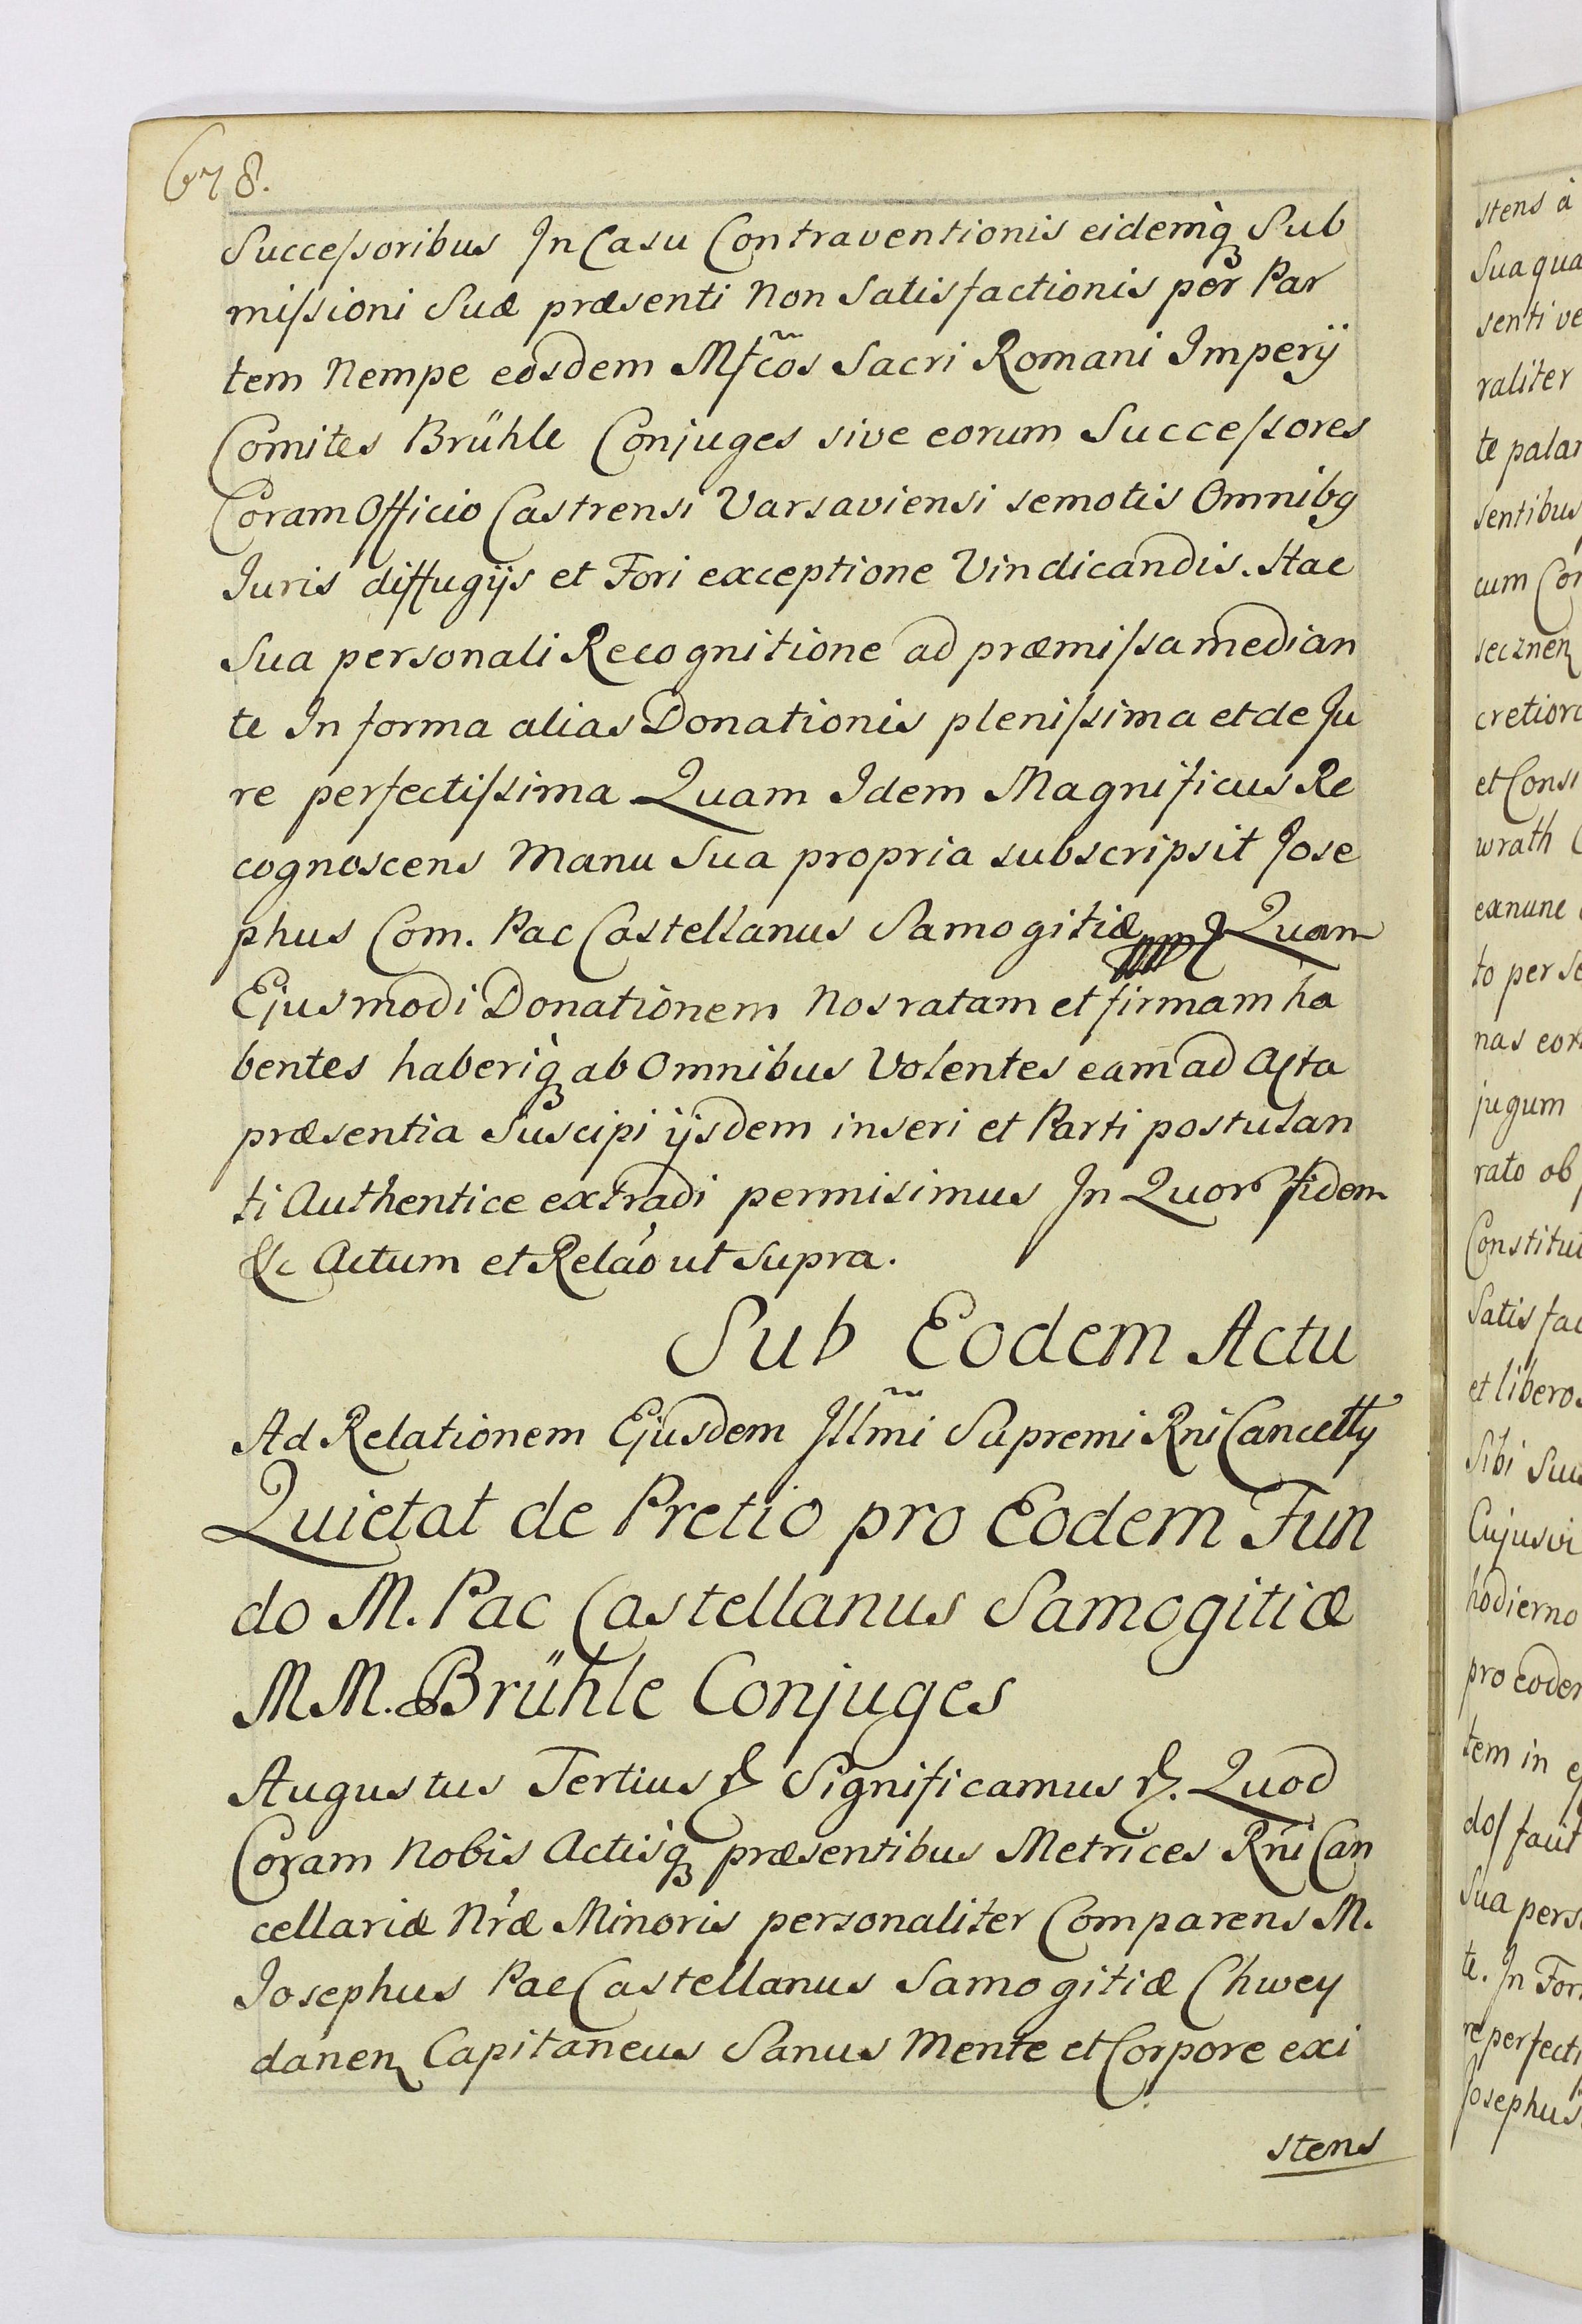 678.
Successoribus In Casu Contraventionis eidemq Sub
missioni Suæ præsenti Non Satisfactionis per Par
tem Nempe eosdem Mfcos Sacri Romani Imperij
Comites Brühle Conjuges sive eorum Successores
Coram Officio Castrensi Varsaviensi semotis Omnibq
Juris diffugijs et Fori exceptione Vindicandis. Hac
Sua personali Recognitione ad præmissa median
te In forma alias Donationis plenissima et de Ju
re perfectissima Quam Idem Magnificus Re
cognoscens Manu Sua propria subscripsit Jose
phus Com. Pac Castellanus Samogitiæ Quam
Ejusmodi Donationem Nos ratam et firmam ha
bentes haberiq ab Omnibus Volentes eam ad Acta
præsentia Suscipi ijsdem inseri et Parti postulan
ti Authentice extradi permisimus In Quor Fidem
&c Actum et Relao ut Supra.
Sub Eodem Actu
Ad Relationem Ejusdem Jllmi Supremi Rni Cancellrij
Quietat de Pretio pro Eodem Fun
do M. Pac Castellanus Samogitiæ
MM. Brühle Conjuges
Augustus Tertius &. Significamus &. Quod
Coram Nobis Actisq præsentibus Metrices Rni Can
cellariæ Nræ Minoris personaliter Comparens M.
Josephus Pac Castellanus Samogitiæ Chwey
danen Capitaneus Sanus Mente et Corpore exi
stens
stens à
Sua qua
senti ve
raliter
te palar
sentibus
cum Con
secznen
cretiore
et Consi
wrath C
exnunc
to per se
nas eor
jugum
rato ob
Constitui
Satisfac
et liberos
Sibi Suu
Cujusvi
hodierno
pro eoder
tem in e
dos fauit
Sua pers
te. In For
re perfecti
Josephus